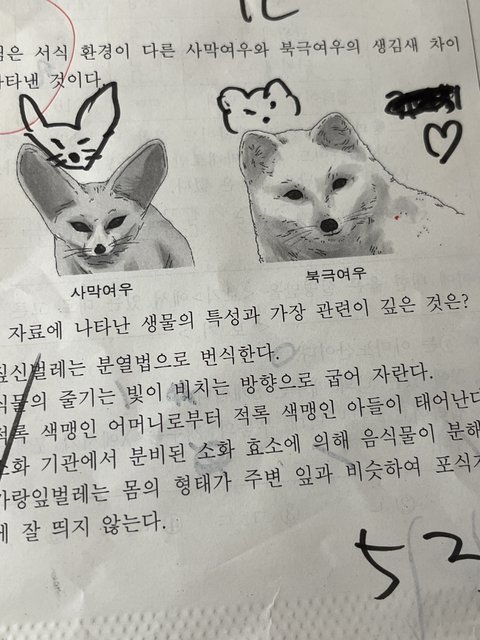 서식 환경이 다른 사막여우와 북극여우의 생김새 차이
것이다.
사막여우
북극여우
자료에 나타난 생물의 특성과 가장 관련이 깊은 것은?
짚신벌레는 분열법으로 번식한다.
식물의 줄기는 빛이 비치는 방향으로 굽어 자란다.
적록 색맹인 어머니로부터 적록 색맹인 아들이 태어난다
소화 기관에서 분비된 소화 효소에 의해 음식물이 분해
가랑잎벌레는 몸의 형태가 주변 잎과 비슷하여
잘 띄지 않는다.
52